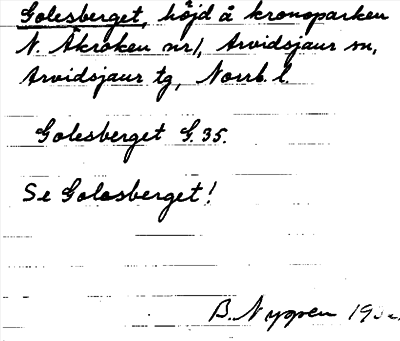 Golesberget, höjd å kronoparken
N. Åkroken nr 1, Arvidsjaur sn,
Arvidsjaur tg, Norrb. l.
Golesberget G. 35.
Se Golosberget!
B. Nygren